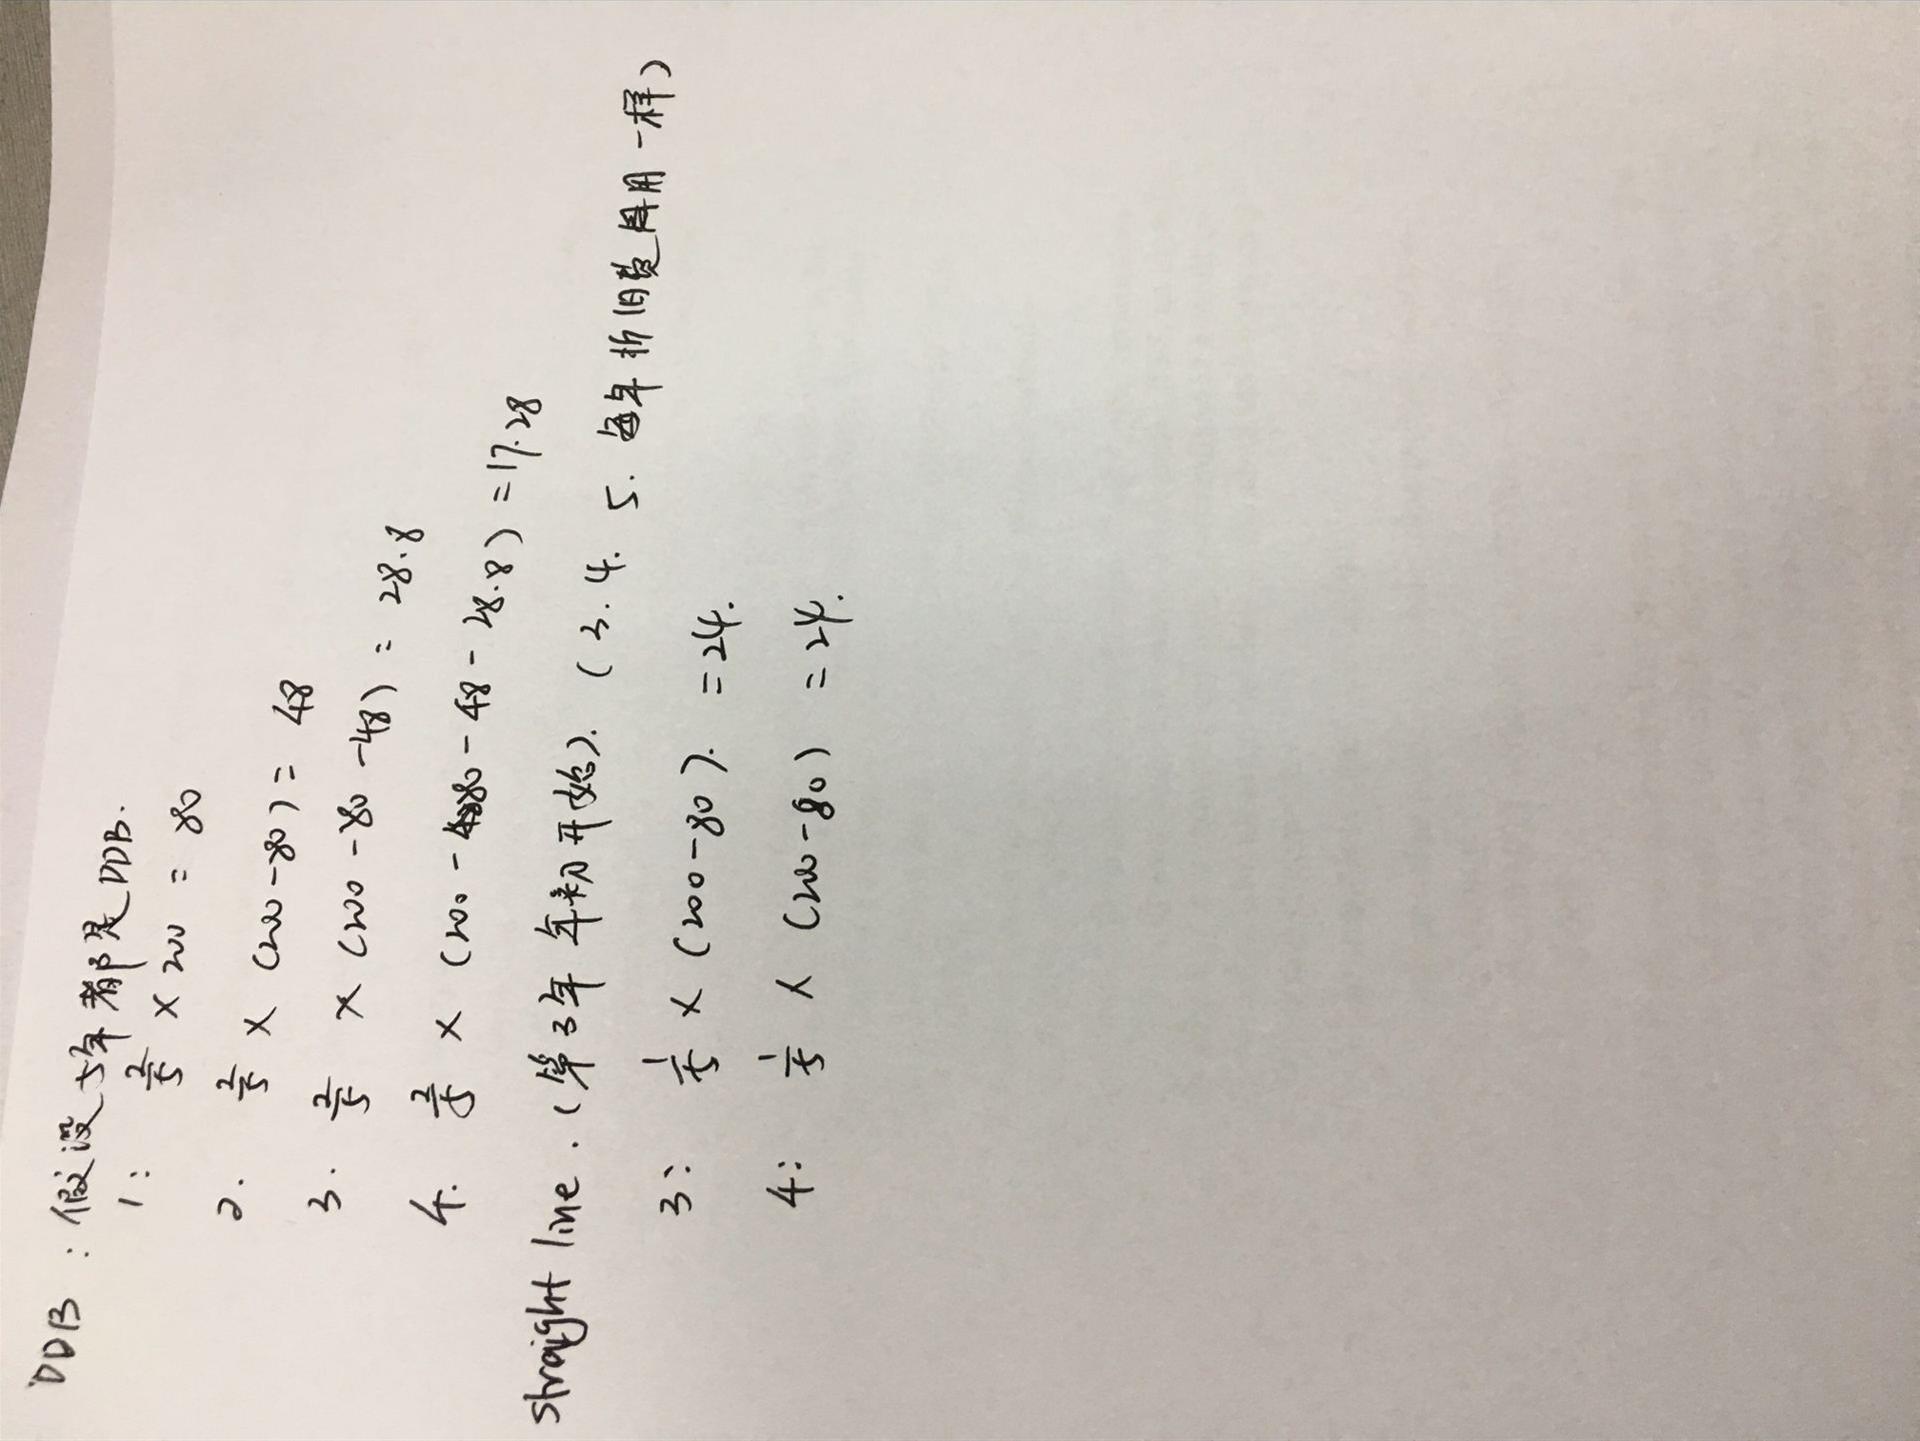 DDB : 假设5年都是DDB.
1: 2/5 × 200 = 80
2. 2/5 × (200-80) = 48
3. 2/5 × (200-80-48) = 28.8
4. 2/5 × (200-80-48-28.8) = 17.28
straight line. (第3年年初开始). (3.4. 5. 每年折旧费用一样)
3: 1/5 × (200-80). = 24.
4: 1/5 × (200-80) = 24.